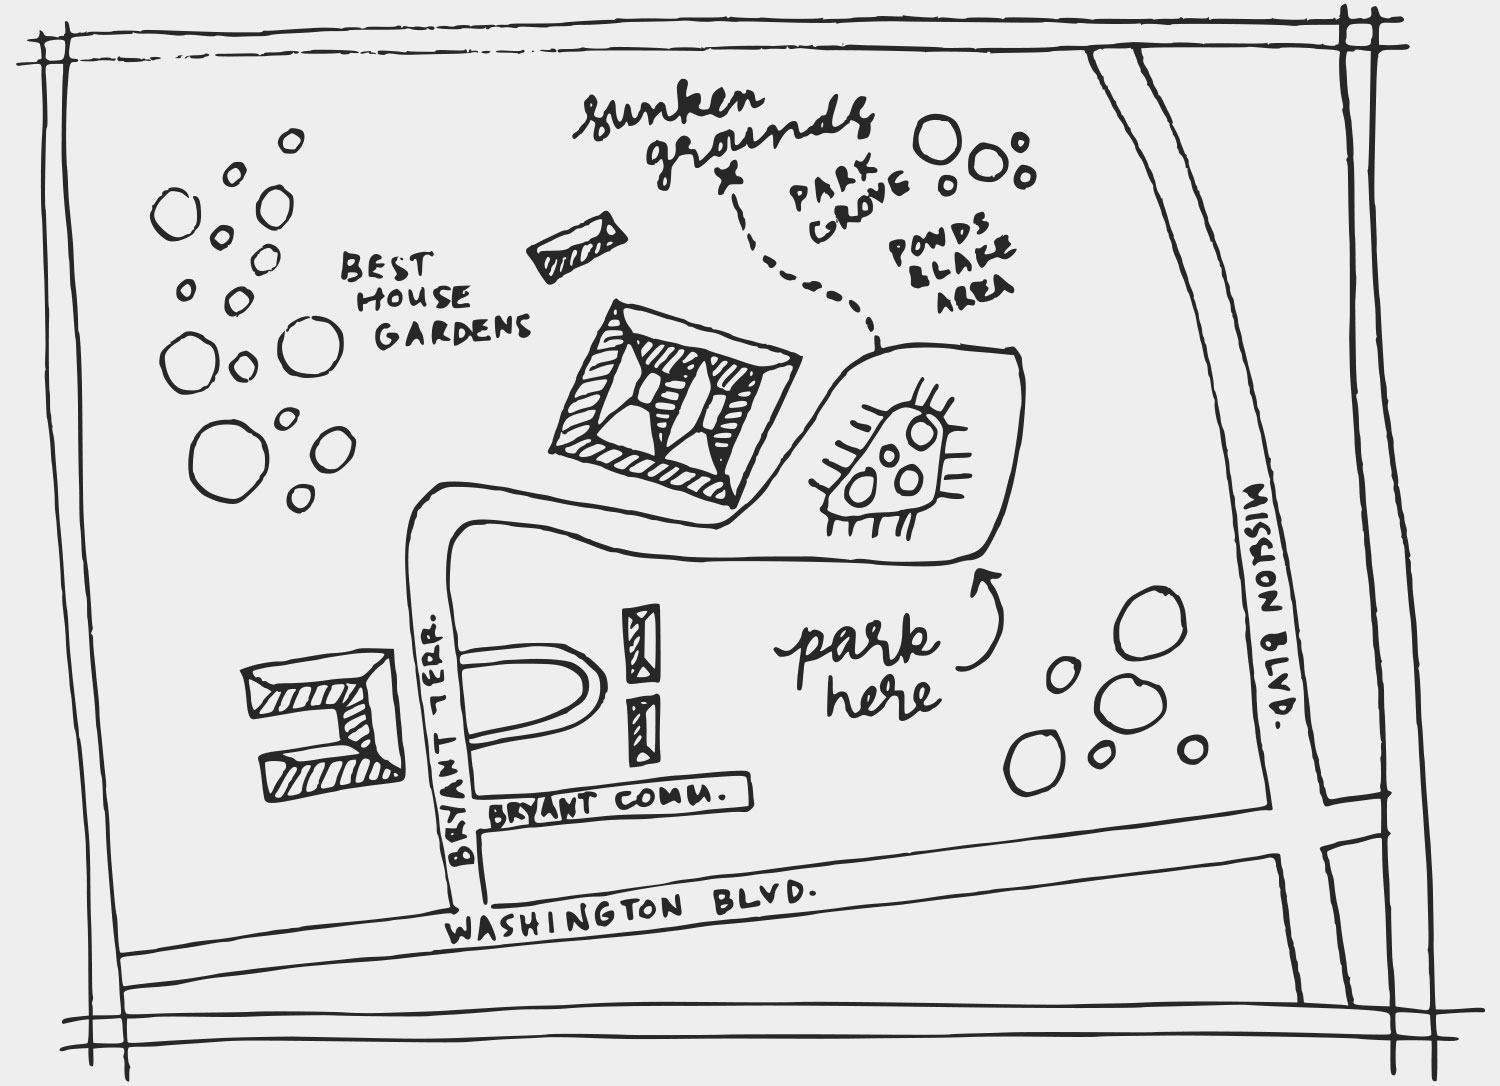 sunken
grounds
PARK
GROVE
PONDS
BLAKE
AREA
BEST
HOUSE
GARDENS
MISSION BLVD.
park
here
BRYANT TERR.
BRYANT COMM.
WASHINGTON BLVD.